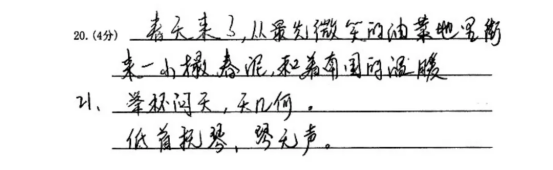 20.(4分) 春天来了,从最先微笑的油菜地里衔
来一小撮春泥,和着南国的温暖
21、举杯问天,天几何。
低首抚琴,琴无声。